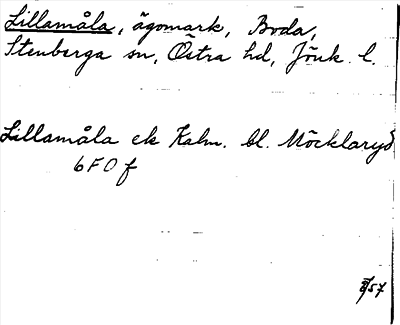 Lillamåla, ägomark, Boda,
Stenberga sn, Östra hd, Jönk. l.
Lillamåla ek Kalm. bl. Möcklaryd
6 F 0 f